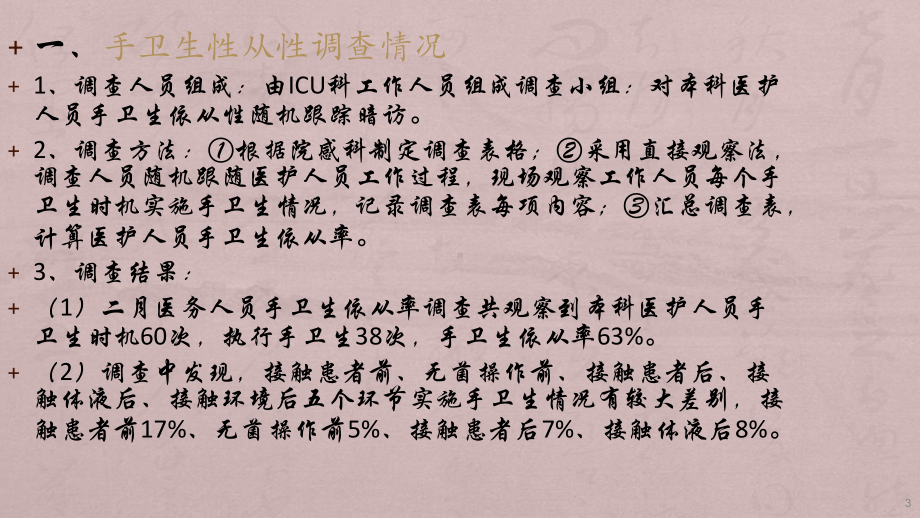 + 一、手卫生性从性调查情况
+ 1、调查人员组成：由ICU科工作人员组成调查小组：对本科医护
人员手卫生依从性随机跟踪暗访。
+ 2、调查方法：①根据院感科制定调查表格；②采用直接观察法，
调查人员随机跟随医护人员工作过程，现场观察工作人员每个手
卫生时机实施手卫生情况，记录调查表每项内容；③汇总调查表，
计算医护人员手卫生依从率。
+ 3、调查结果：
+ （1）二月医务人员手卫生依从率调查共观察到本科医护人员手
卫生时机60次，执行手卫生38次，手卫生依从率63%。
+ （2）调查中发现，接触患者前、无菌操作前、接触患者后、接
触体液后、接触环境后五个环节实施手卫生情况有较大差别，接
触患者前17%、无菌操作前5%、接触患者后7%、接触体液后8%。
3